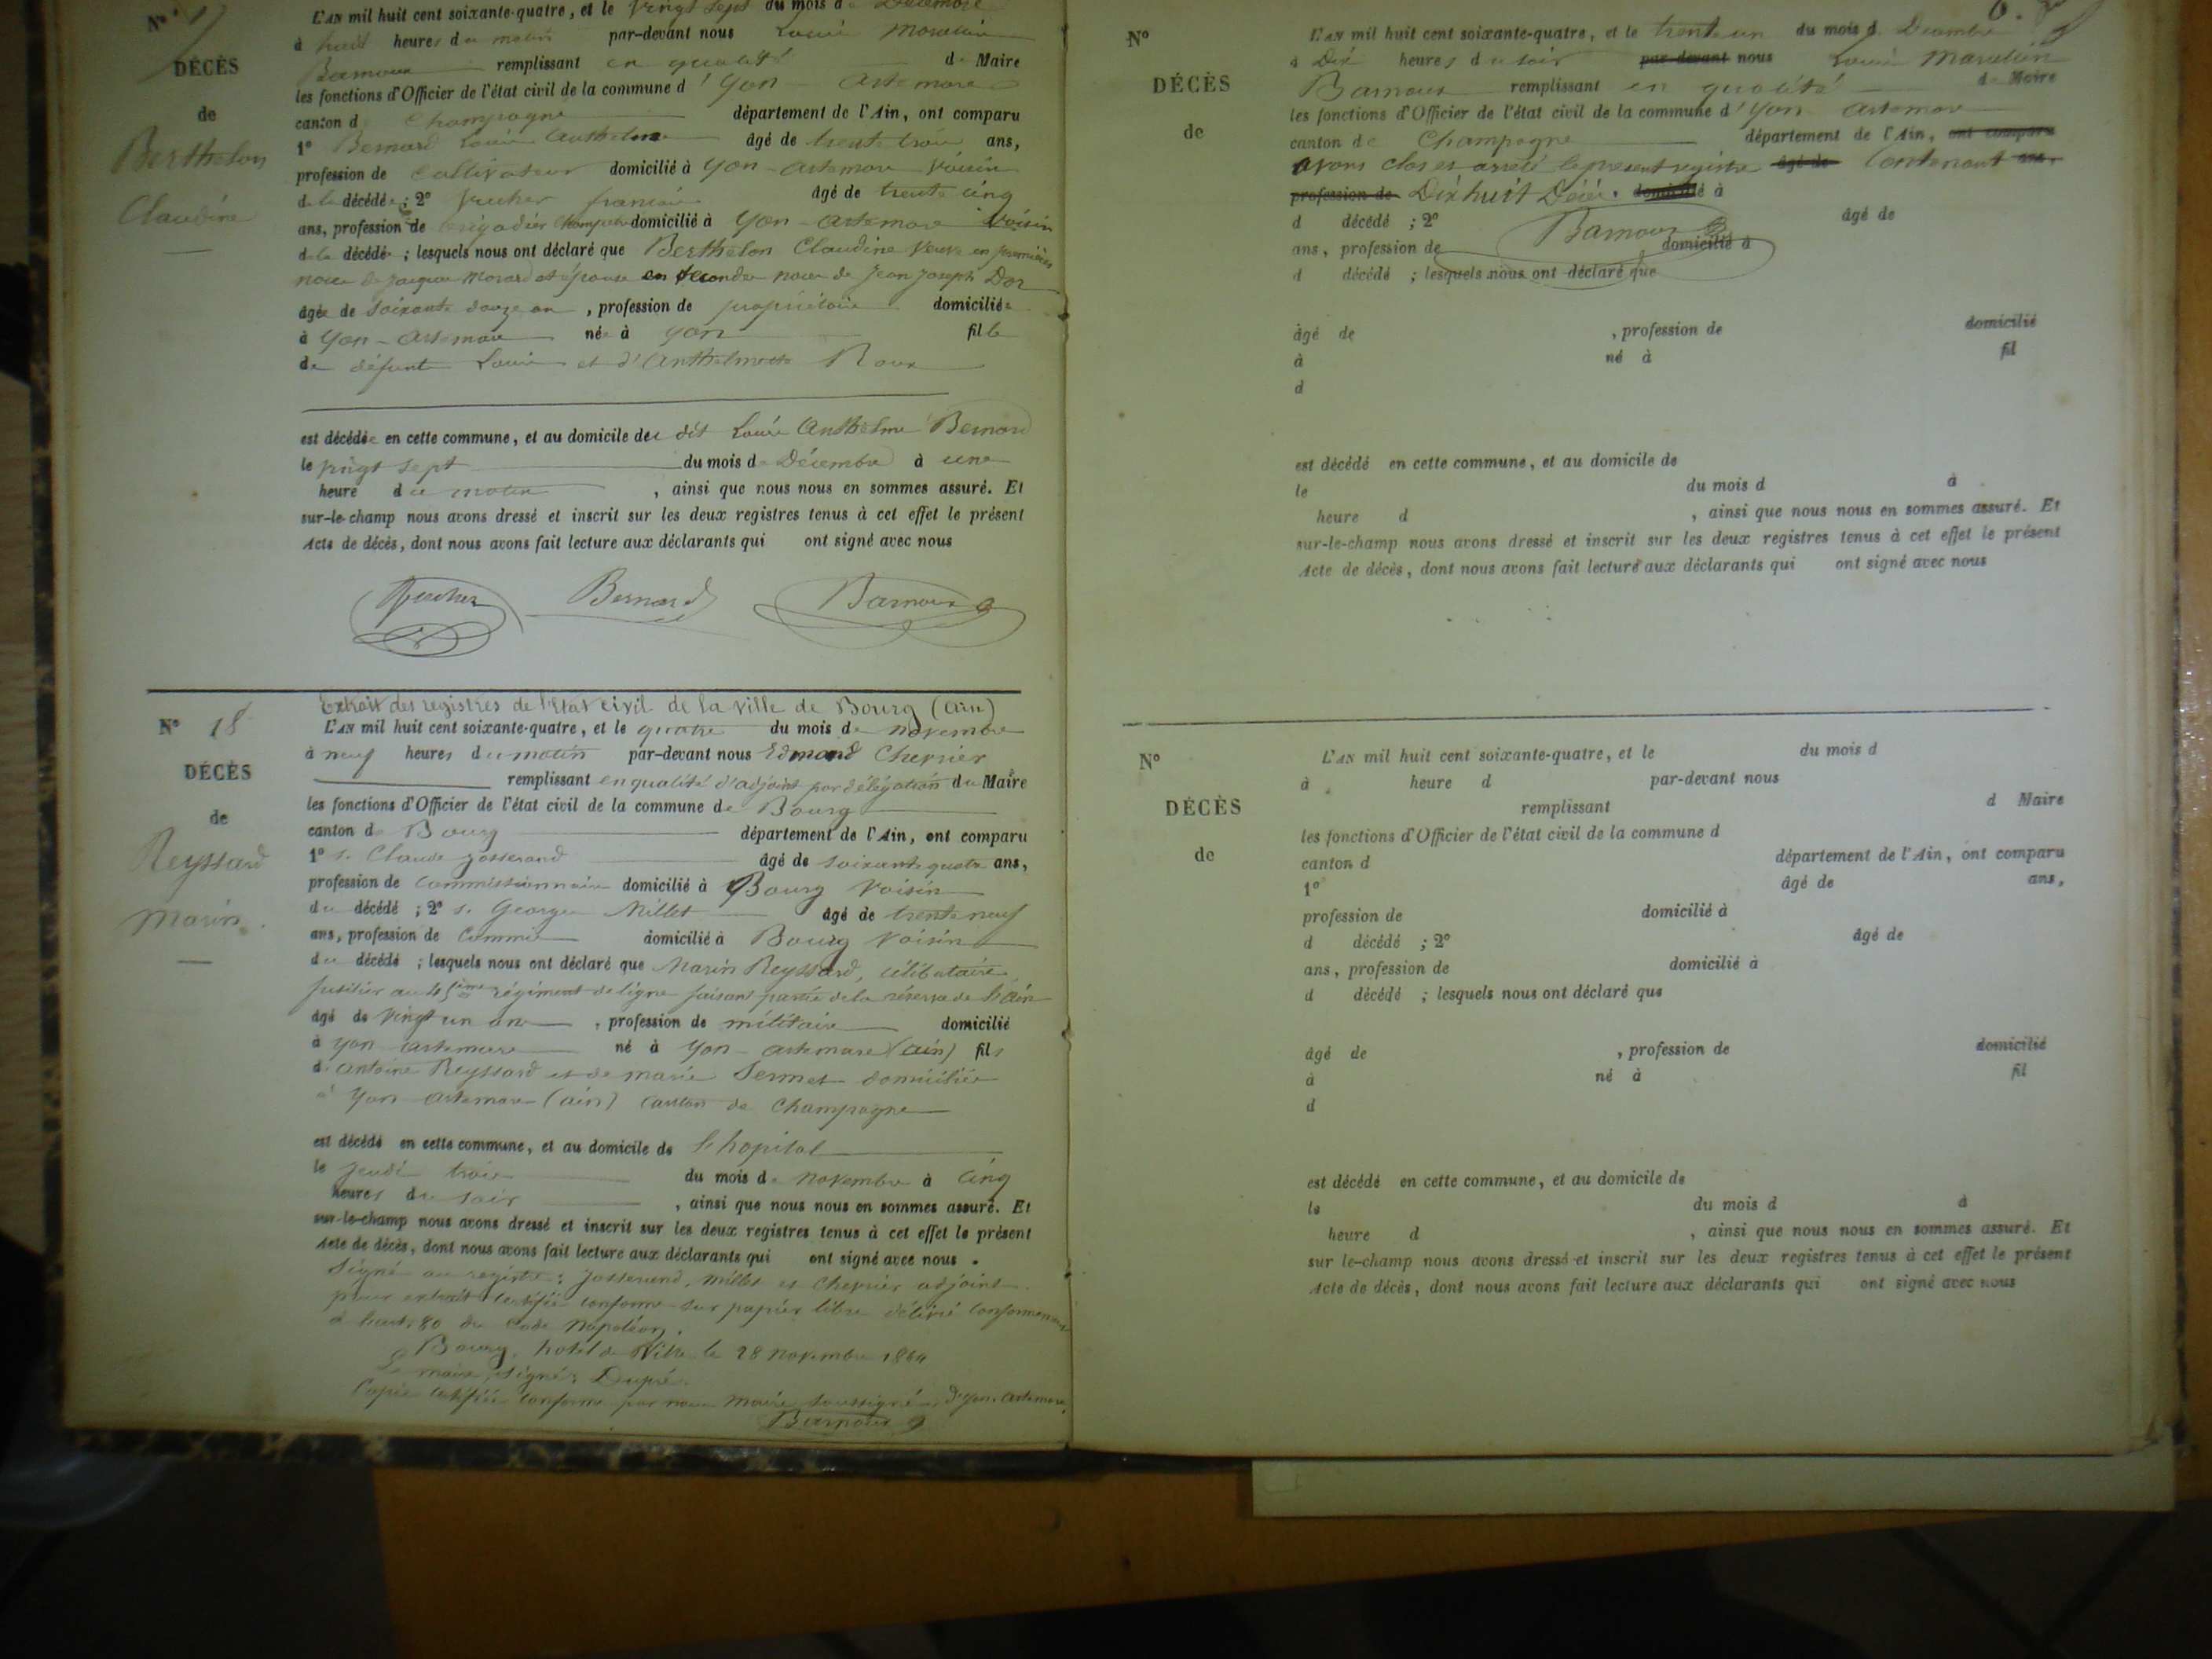 N° 17
DÉCÈS
de
Berthelon
Claudine
L'AN mil huit cent soixante-quatre, et le vingt sept du mois de Décembre
à huit heures du matin par-devant nous Louis Marcelin
Barnoux remplissant en qualité de Maire
les fonctions d'Officier de l'état civil de la commune d'Yon Artemare
canton de Champagne département de l'Ain, ont comparu
1° Bernard Louis Anthelme âgé de trente trois ans,
profession de Cultivateur domicilié à Yon-Artemare voisin
de la décédée ; 2° françois âgé de trente cinq
ans, profession de brigadier domicilié à Yon-Artemare Voisin
de la décédée ; lesquels nous ont déclaré que Berthelon Claudine Veuve en premières
noces de Jacques Morard et épouse en secondes noces de Jean Joseph Dor
âgée de soixante douze ans, profession de propriétaire domiciliée
à Yon-Artemare née à Yon fille
de défunts Louis et d'Anthelmette Roux
est décédée en cette commune, et au domicile de dit Louis Anthelme Bernard
le vingt sept du mois de Décembre à une
heure du matin, ainsi que nous nous en sommes assuré. Et
sur-le-champ nous avons dressé et inscrit sur les deux registres tenus à cet effet le présent
Acte de décès, dont nous avons fait lecture aux déclarants qui ont signé avec nous
Bernard Barnoux
Extrait des registres de l'Etat civil de la ville de Bourg (Ain)
N° 18
DÉCÈS
de
Reyssard
Marin
L'AN mil huit cent soixante-quatre, et le quatre du mois de novembre
à neuf heures du matin par-devant nous Edmond Chevrier
remplissant en qualité d'adjoint par délégation du Maire
les fonctions d'Officier de l'état civil de la commune de Bourg
canton de Bourg département de l'Ain, ont comparu
1° s. Claude Josserand âgé de soixante quatre ans,
profession de Commissionnaire domicilié à Bourg voisin
du décédé ; 2° s. Georges Millet âgé de trente neuf
ans, profession de Commis domicilié à Bourg voisin
du décédé ; lesquels nous ont déclaré que Marin Reyssard, célibataire
fusilier au 45ème régiment de ligne faisant partie de la réserve de l'Ain
âgé de vingt un ans, profession de militaire domicilié
à Yon Artemare né à Yon-Artemare (Ain) fils
d'Antoine Reyssard et de Marie Sermet domiciliés
à Yon Artemare (Ain) canton de Champagne
est décédé en cette commune, et au domicile de l'hopital
le jeudi trois du mois de Novembre à Cinq
heures du soir, ainsi que nous nous en sommes assuré. Et
sur-le-champ nous avons dressé et inscrit sur les deux registres tenus à cet effet le présent
Acte de décès, dont nous avons fait lecture aux déclarants qui ont signé avec nous.
Signé au registre: Josserand, Millet et Chevrier adjoint.
pour extrait certifié conforme sur papier libre délivré conformément
à l'art. 80 du Code Napoléon.
Bourg, hotel de Ville le 28 novembre 1864
Le maire, signé: Dupré.
Copie certifiée conforme par nous Maire soussigné d'Yon-Artemare,
Barnoux
N°
DÉCÈS
de
L'AN mil huit cent soixante-quatre, et le trente un du mois de Décembre
à Dix heures du soir par-devant nous Louis Marcelin
Barnoux remplissant en qualité de Maire
les fonctions d'Officier de l'état civil de la commune d'Yon Artemare
canton de Champagne département de l'Ain, ont comparu
avons clos et arrêté le present registre âgé de Contenant ans,
profession de Dix huit Décès. domicilié à
d décédé ; 2° Barnoux âgé de
ans, profession de domicilié à
d décédé ; lesquels nous ont déclaré que
âgé de , profession de domicilié
à né à fil
d
est décédé en cette commune, et au domicile de
le du mois d à
heure d , ainsi que nous nous en sommes assuré. Et
sur-le-champ nous avons dressé et inscrit sur les deux registres tenus à cet effet le présent
Acte de décès, dont nous avons fait lecture aux déclarants qui ont signé avec nous
N°
DÉCÈS
de
L'AN mil huit cent soixante-quatre, et le du mois d
à heure d par-devant nous
remplissant d Maire
les fonctions d'Officier de l'état civil de la commune d
canton d département de l'Ain, ont comparu
1° âgé de ans,
profession de domicilié à
d décédé ; 2° âgé de
ans, profession de domicilié à
d décédé ; lesquels nous ont déclaré que
âgé de , profession de domicilié
à né à fil
d
est décédé en cette commune, et au domicile de
le du mois d à
heure d , ainsi que nous nous en sommes assuré. Et
sur le-champ nous avons dressé et inscrit sur les deux registres tenus à cet effet le présent
Acte de décès, dont nous avons fait lecture aux déclarants qui ont signé avec nous